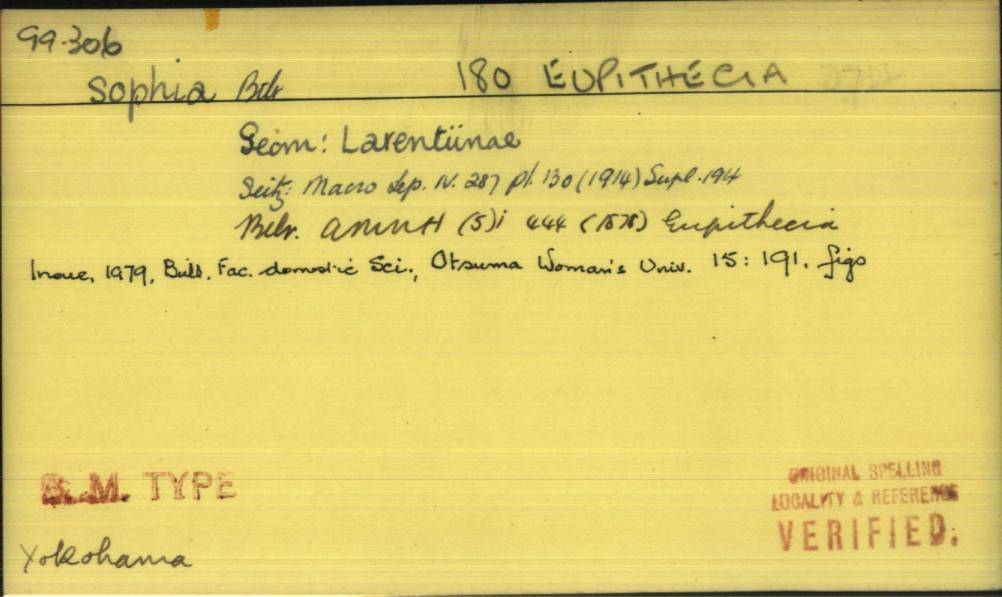 99·306
Sophia Btlr 180 EUPITHECIA
Geom: Larentiinae
Seitz: Macro Lep. IV. 287 pl. 130 (1914) Supl. 194
Btlr. AMNH (5)i 444 (1878) Eupithecia
Inoue, 1979, Bull. Fac. domestic Sci., Otsuma Woman's Univ. 15: 191, figs
B.M. TYPE
ORIGINAL SPELLING
LOCALITY & REFERENCE
VERIFIED.
Yokohama